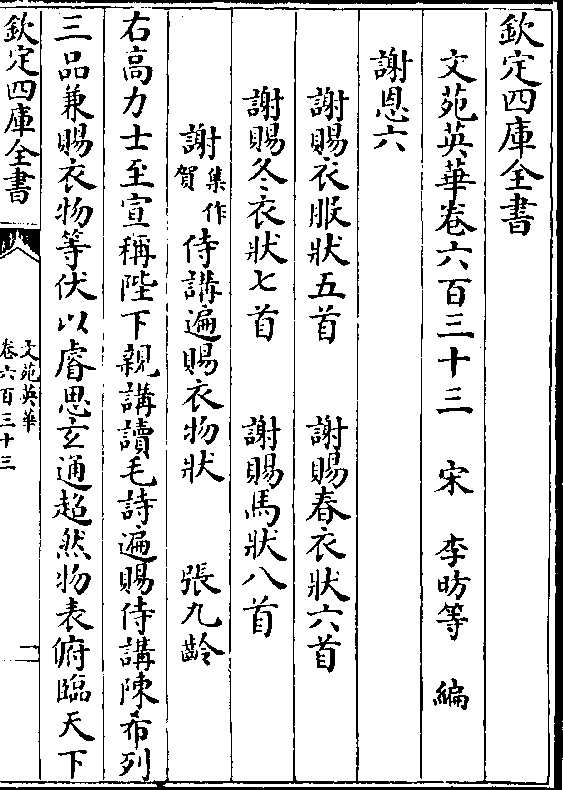 欽定四庫全書
文苑英華卷六百三十三　宋　李昉等　編
謝恩六
謝賜衣服狀五首　謝賜春衣狀六首
謝賜冬衣狀七首　謝賜馬狀八首
謝集作賀侍講遍賜衣物狀　張九齡
右高力士至宣稱陛下親講讀毛詩遍賜侍講陳希列
三品兼賜衣物等伏以睿思玄通超然物表俯臨天下
欽定四庫全書
文苑英華
卷六百三十三
二